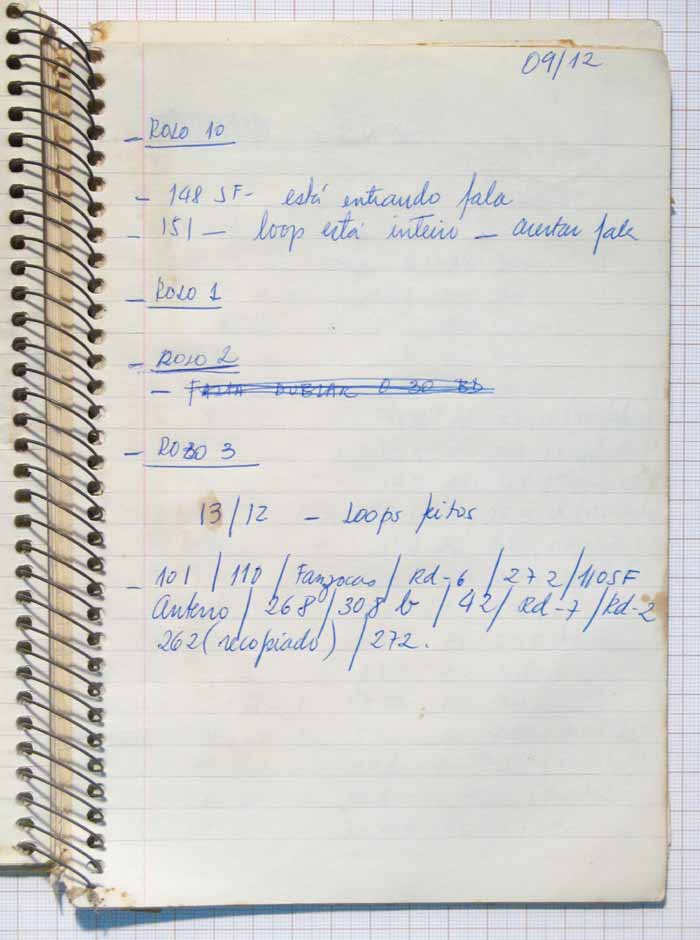 09/12
- ROLO 10
- 148 SF - está entrando fala
- 151 - loop está inteiro - acertar fala
- ROLO 1
- ROLO 2
- FALTA DUBLAR O 30
- ROLO 3
13/12 - Loops feitos
- 101 / 110 / / Rd-6 / 272 / 110SF
Antero / 268 / 308 b / 42 / Rd-7 / Rd-2
262 (recopiado) / 272.